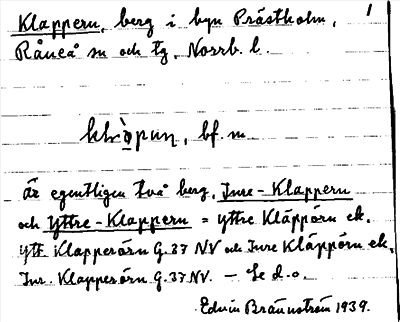 Klappern, berg i byn Prästholm, 1
Råneå sn och tg, Norrb. l.
bf. m
Är egentligen två berg, Inre-Klappern
och Yttre-Klappern = Yttre Kläppörn ek.
Ytt. Klapperörn G.37 NV och Inre Kläppörn ek.
Inr. Klapperörn G.37 NV. — Se d.o.
Edvin Brännström 1939.